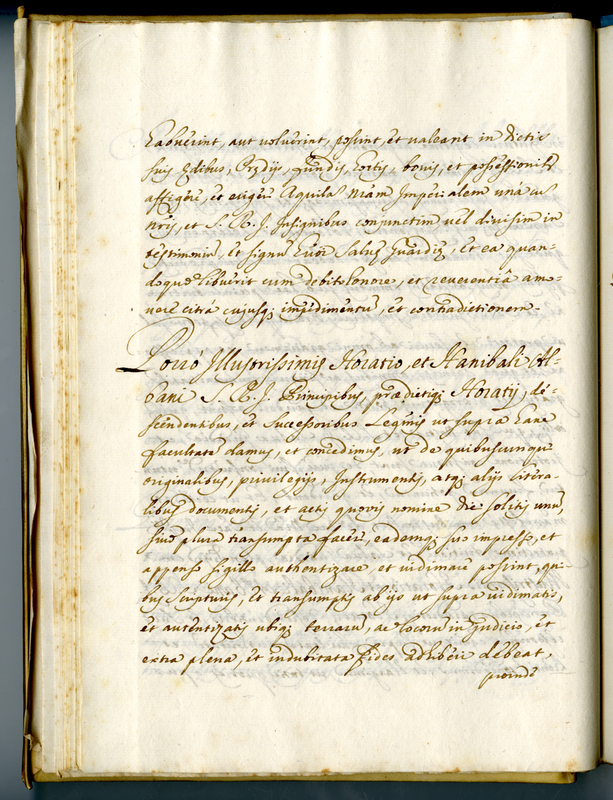 habuerint, aut voluerint, possint, et valeant in dictis
suis Ædibus, Prædijs, fundis, bonis, et possessionib9
affigere, et erigere Aquila Nrãm Imperialem unà cũ
nris, et S. R. I. Insignibus conjunctim vel divisim in
testimoniũ, et signũ Salvæ Guardiæ, et ea quan-
doque libuerit cum debito honore, et reverentiâ amo-
vere citrà cujusq; impedimentũ, et contradictionem.
Porrò Illustrissimis Horatio, et Hanibali Al-
bani S. R. I. Principibus, prædictiq; Horatij, de-
scendentibus, et successoribus Legmis ut supra hanc
facultatẽ damus, et concedimus, ut de quibuscumque
originalibus, privilegijs, Instrumentis, atq; alijs littera-
libus documentis, et actis quovis nomine dici solitis unũ,
sivè plura transumpta facere, eademq; suo impresso, et
appenso sigillo authentizare et vidimare possint, qui-
bus scripturis, et transumptis ab ijs ut supra vidimatis,
et autentizatis ubiq; terrarũ, ac locorũ in Judicio, et
extra plena, et indubitata fides adhiberi debeat,
proinde